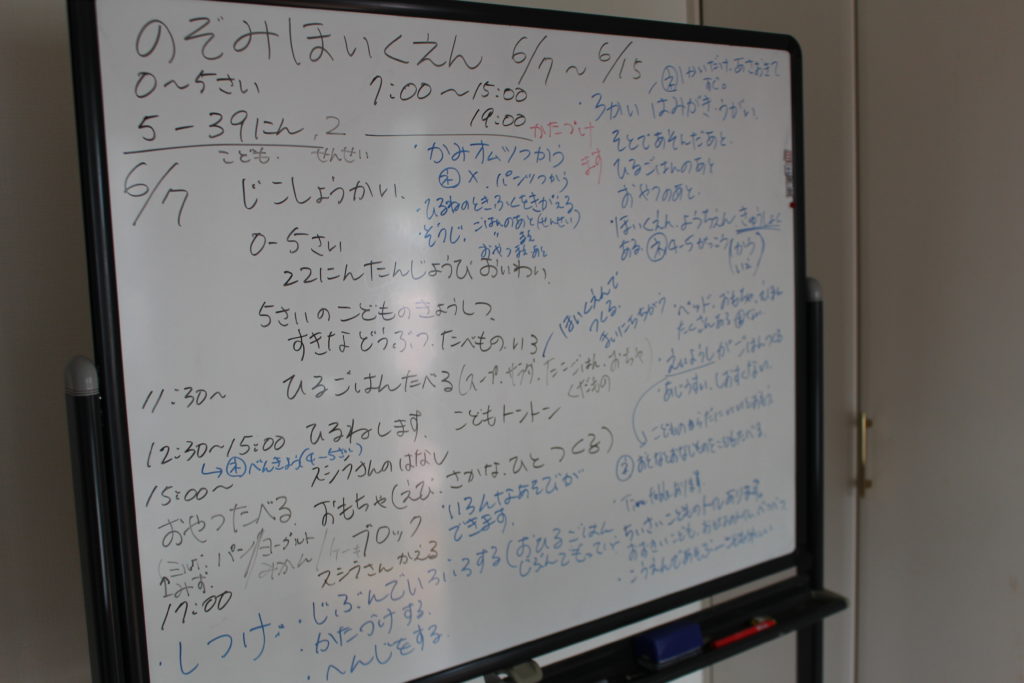 のぞみほいくえん 6/7～6/15
0～5さい 7:00～15:00
19:00
5－39にん, 2
こども. せんせい
6/7 じこしょうかい.
0-5さい
22にんたんじょうび おいわい.
5さいのこどものきょうしつ.
すきなどうぶつ.たべもの.いろ
11:30～ ひるごはんたべる(スープ.サラダ.たこごはん.おちゃ)
くだもの
12:30～15:00 ひるねします. こどもトントン
べんきょう(4-5さい)
スシラさんのはなし
15:00～
おやつたべる. おもちゃ(えび.さかな.ひと つくる)
パン ヨーグルト ケーキ ブロック
みかん スシラさん かえる
みず.
17:00
・しつけ:・じぶんでいろいろする(おひるごはん
じぶんでもっていく
・かたづけする.
・へんじをする.
かたづけ
ます
・かみオムツつかう
×. パンツつかう
・ひるねのときふくをきがえる
・そうじ. ごはんのあと(せんせい)
おやつ あと
ほいくえんで
つくる.
まいにちちがう
・いろんなあそびが
できます.
1かいだけ.あさおきて
すぐ.
・3かい はみがき・うがい.
そとであそんだあと.
ひるごはんのあと
おやつのあと.
・ほいくえん.ようちえん きゅうしょく
ある 4-5がっこう
・ベッド.おもちゃ.えほん
たくさんある
・えいようしがごはんつくる
・あじうすい.しおすくない.
・Time tableあります.
・ちいさいこどものトイレあります